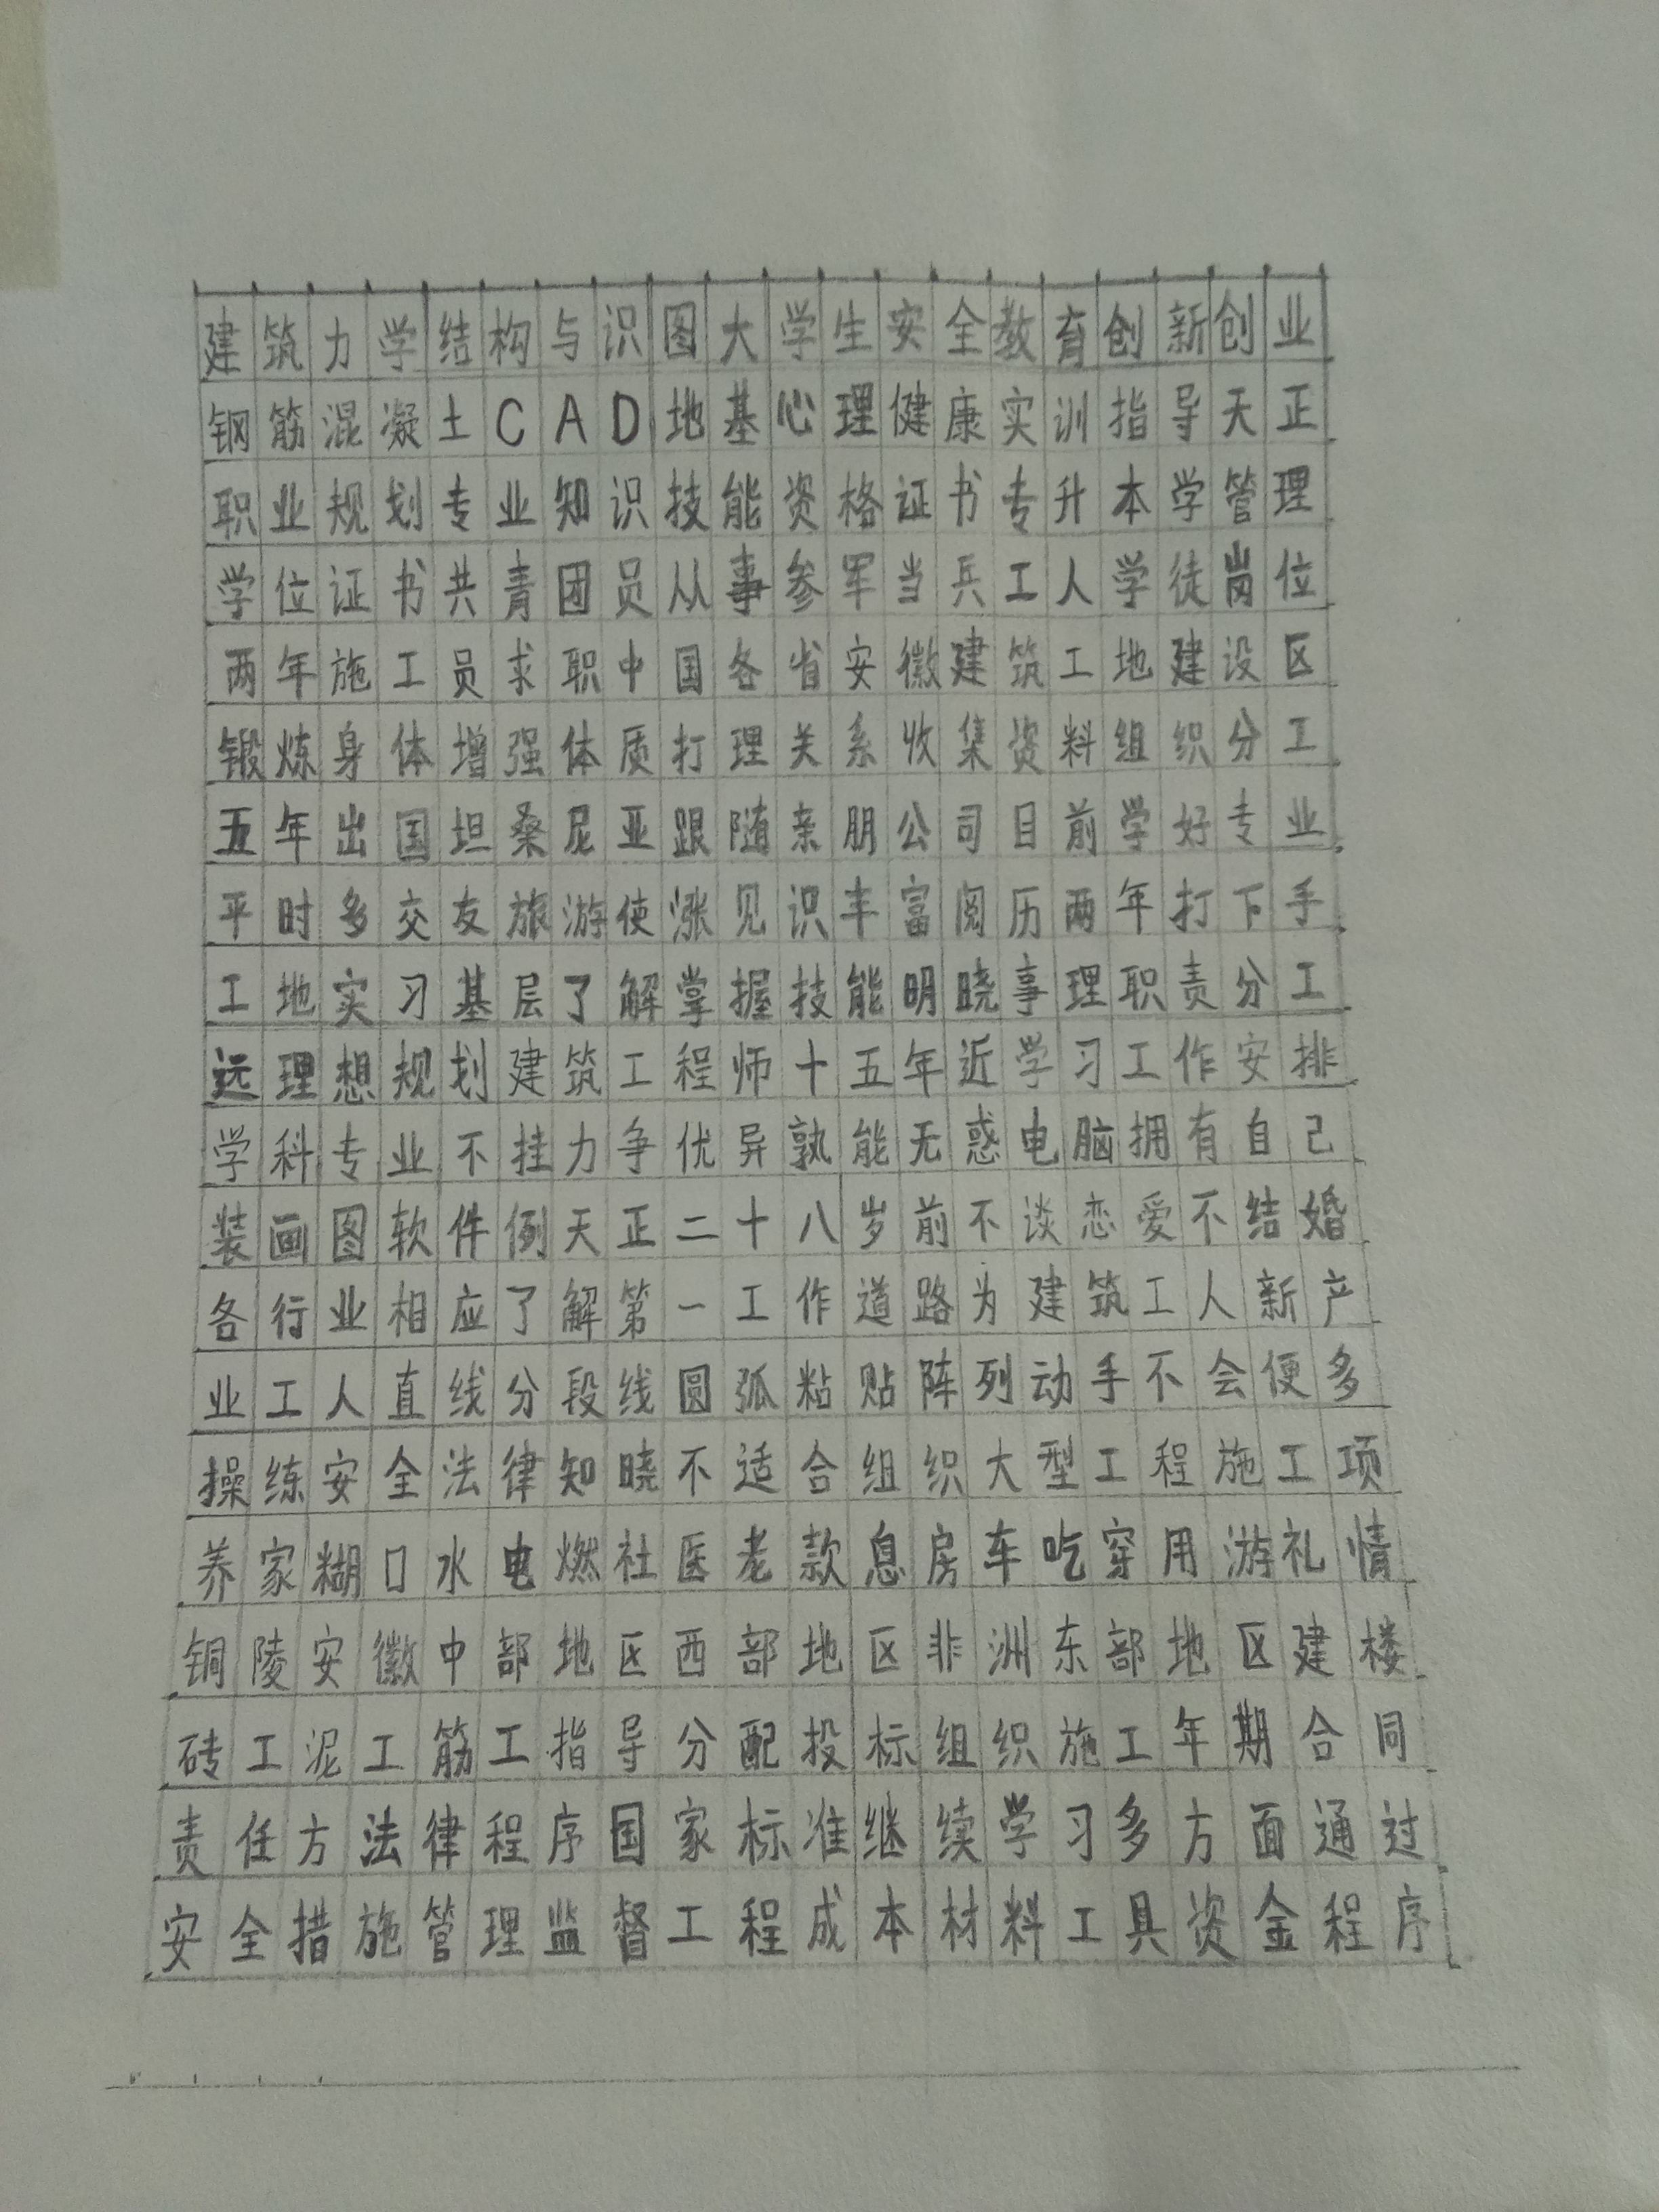 建筑力学结构与识图大学生安全教育创新创业
钢筋混凝土CAD地基心理健康实训指导天正
职业规划专业知识技能资格证书专升本学管理
学位证书共青团员从事参军当兵工人学徒岗位
两年施工员求职中国各省安徽建筑工地建设区
锻炼身体增强体质打理关系收集资料组织分工
五年出国坦桑尼亚跟随亲朋公司目前学好专业
平时多交友旅游使涨见识丰富阅历两年打下手
工地实习基层了解掌握技能明晓事理职责分工
远理想规划建筑工程师十五年近学习工作安排
学科专业不挂力争优异孰能无惑电脑拥有自己
装画图软件例天正二十八岁前不谈恋爱不结婚
各行业相应了解第一工作道路为建筑工人新产
业工人直线分段线圆弧粘贴阵列动手不会便多
操练安全法律知晓不适合组织大型工程施工项
养家糊口水电燃社医老款息房车吃穿用游礼情
铜陵安徽中部地区西部地区非洲东部地区建楼
砖工泥工筋工指导分配投标组织施工年期合同
责任方法律程序国家标准继续学习多方面通过
安全措施管理监督工程成本材料工具资金程序